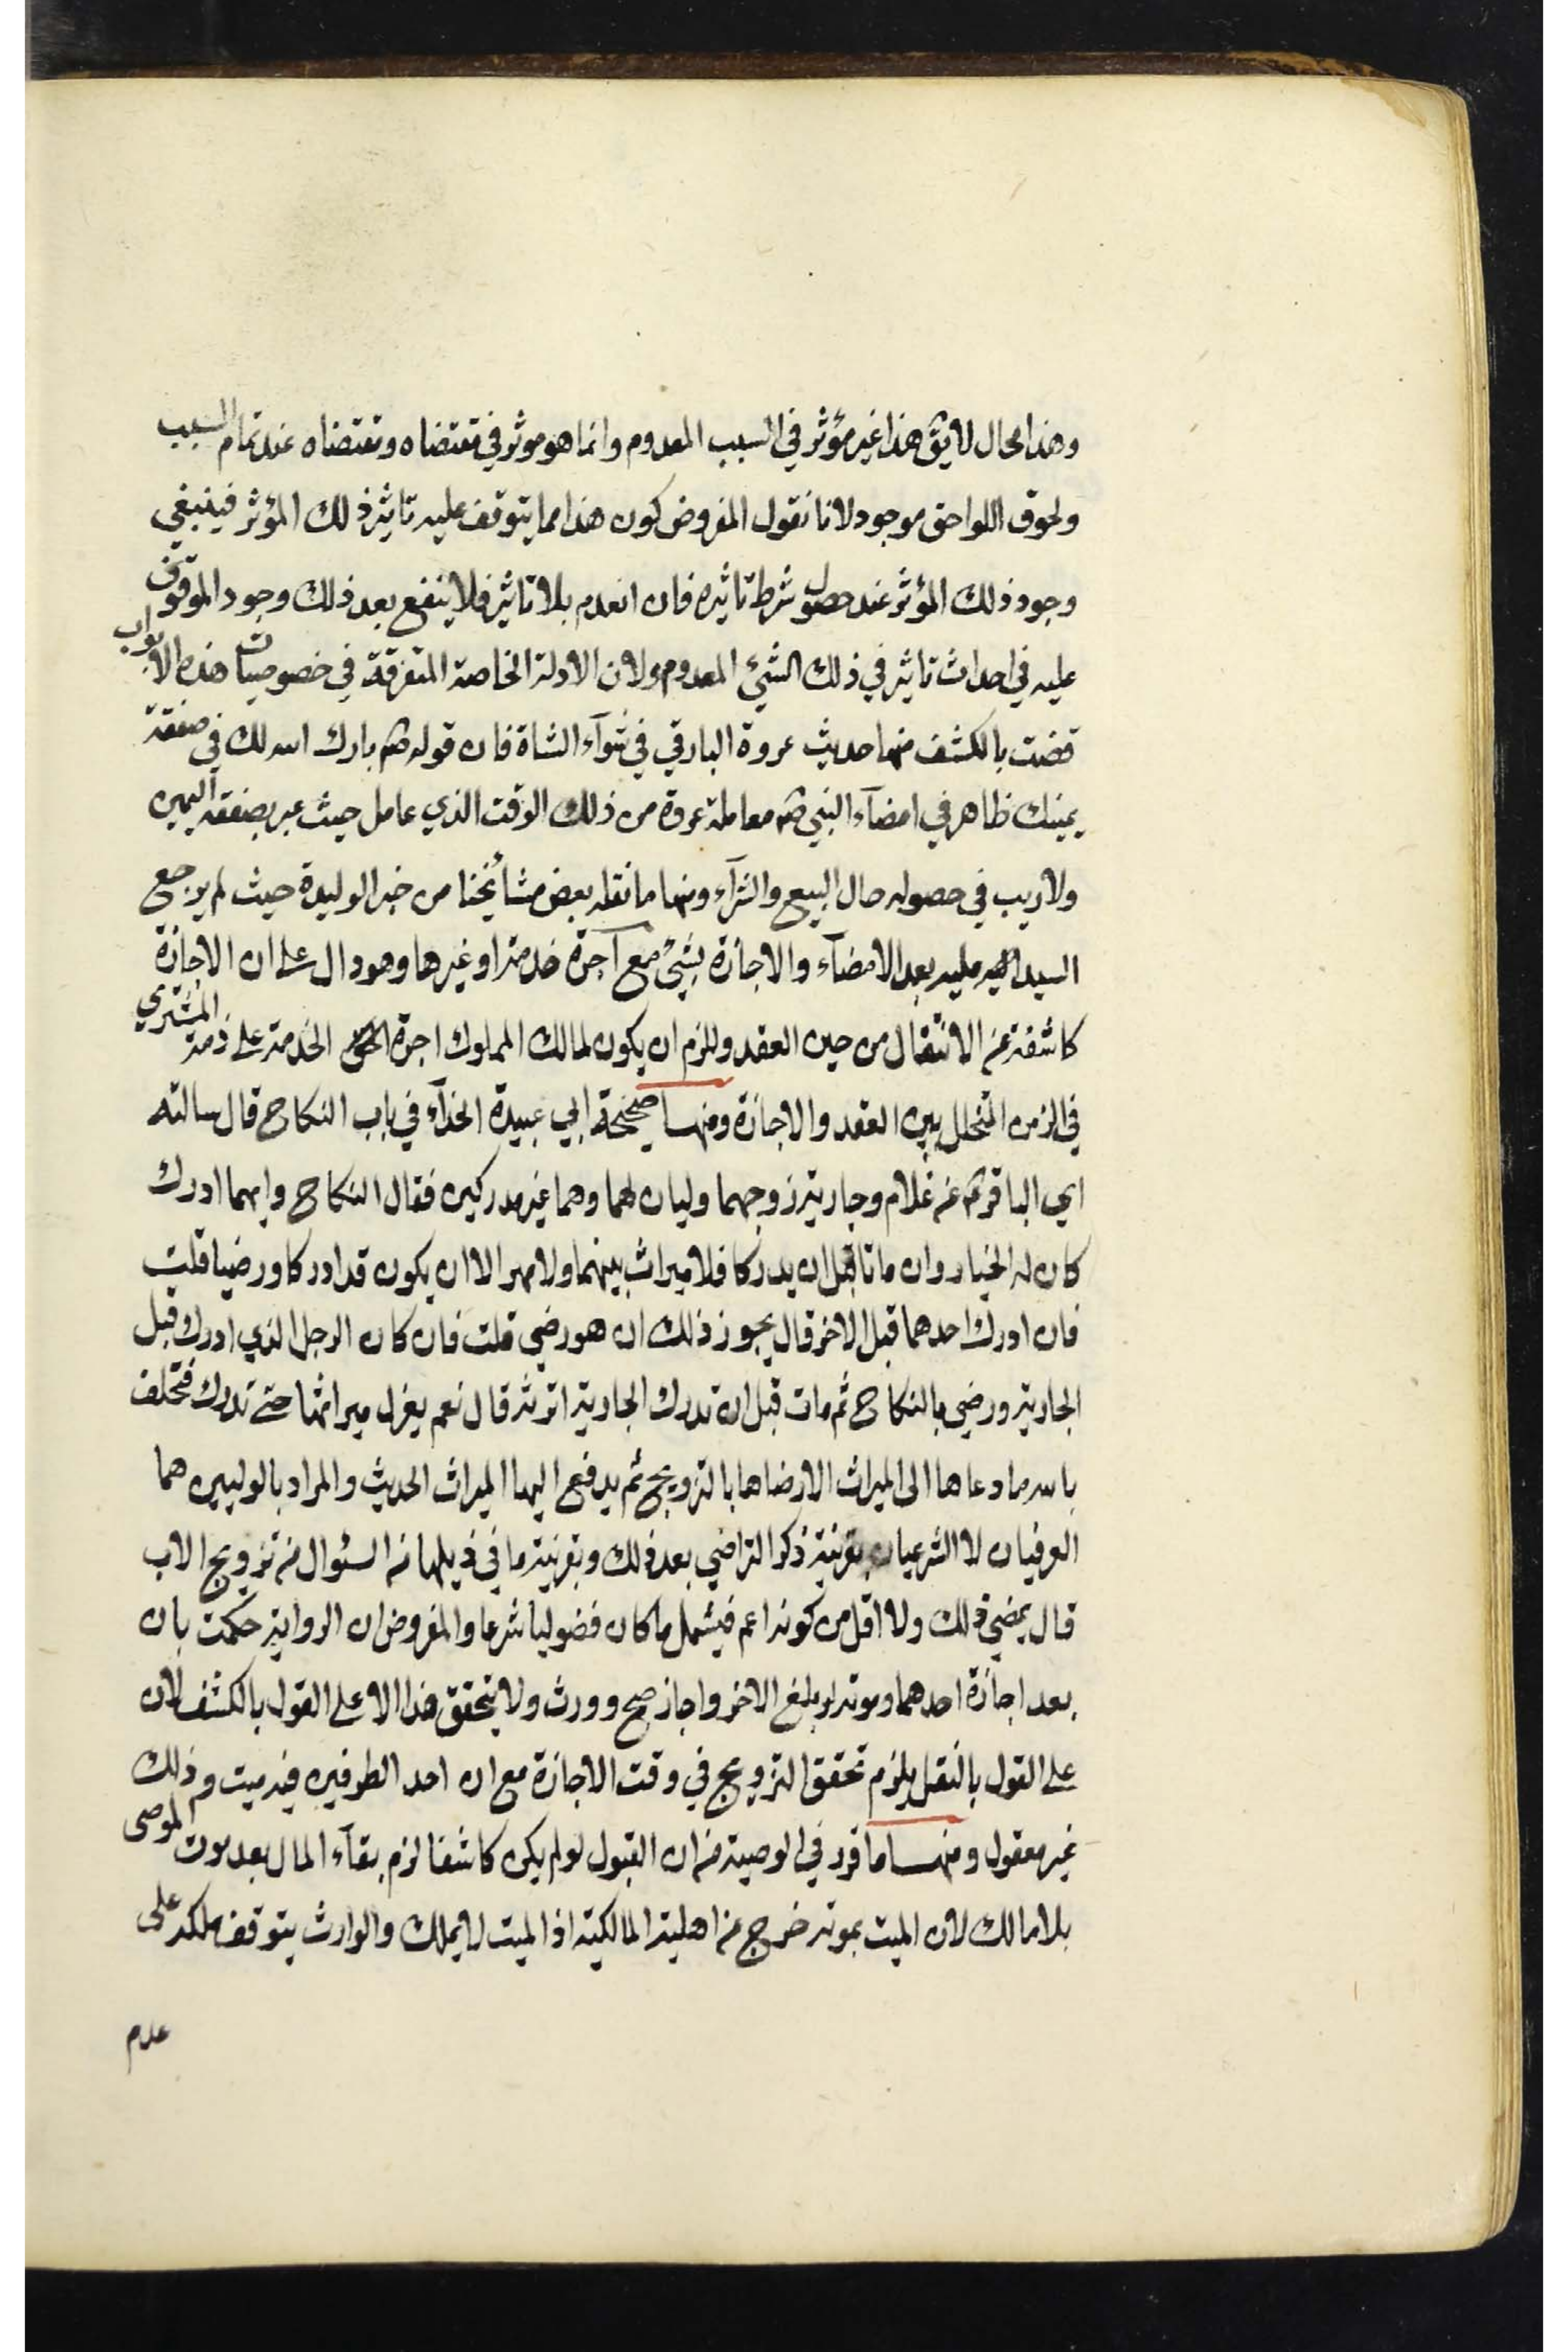 وهذا محال لا يق هذا غير مؤثر في السبب المعدوم وانما هو موثر في مقتضاه ومقتضاه عند تمام السبب
ولحوق اللواحق موجود لانا نقول المفروض كون هذا مما يتوقف عليه تاثير ذلك المؤثر فينبغي
وجود ذلك المؤثر عند حصول شرط تاثيره فان انعدم بلا تاثير فلا ينفع بعد ذلك وجود الموقوف
عليه في احداث تاثير في ذلك الشيئ المعدوم ولان الادلة الخاصة المتفرقة في خصوصيات هذه الابواب
قضت بالكشف منها حديث عروة البارقي في شرآء الشاة فان قوله ص بارك الله لك في صفقة
يمينك ظاهر في امضآء النبي ص معاملة عروة من ذلك الوقت الذي عامل حيث عبر بصفقه اليمين
ولا ريب في حصوله حال البيع والشرآء ومنها ما نقله بعض مشائخنا من خبر الوليدة حيث لم يرجع
السيد عليه بعد الامضآء والاجازة بشيئ مع اجرة خدمته او غيرها وهو دال على ان الاجازة
كاشفة عن الانتقال من حين العقد وللزم ان يكون لمالك المملوك اجرة الخدمة على ذمة المشتري
في الزمن المتخلل بين العقد والاجازة ومنها صحيحة ابي عبيدة الحذآء في باب النكاح قال سالته
اي الباقر ع عن غلام وجارية زوجهما وليان لهما وهما غير مدركين فقال النكاح وايهما ادرك
كان له الخيار وان ماتا قبل ان يدركا فلا ميراث بينهما ولا مهر الا ان يكون قد ادركا ورضيا قلت
فان ادرك احدهما قبل الاخر قال يجوز ذلك ان هو رضي قلت فان كان الرجل الذي ادرك قبل
الجارية ورضي بالنكاح ثم مات قبل ان تدرك الجارية اترثه قال نعم يعزل ميراثها حتى تدرك فتحلف
بالله ما دعاها الى الميراث الا رضاها بالتزويج ثم يدفع اليها الميراث الحديث والمراد بالوليين هما
العرفيان لا الشرعيان بقرينة ذكر التراضي بعد ذلك وبقرينة ما في ذيلها من السئوال من تزويج الاب
قال يمضي ذلك ولا اقل من كونه اعم فيشمل ما كان فضوليا شرعا والمفروض ان الرواية حكمت بان
بعد اجازة احدهما وموته لو بلغ الاخر واجاز صح وورث ولا يتحقق هذا الا على القول بالكشف لان
على القول بالنقل يلزم تحقق التزويج في وقت الاجازة مع ان احد الطرفين فيه ميت وذلك
غير معقول ومنها ما قرر في الوصية من ان القبول لو لم يكن كاشفا لزم بقآء المال بعد موت الموصى
بلا مالك لان الميت بموته خرج عن اهلية المالكية اذ الميت لا يملك والوارث يتوقف ملكه على
عدم